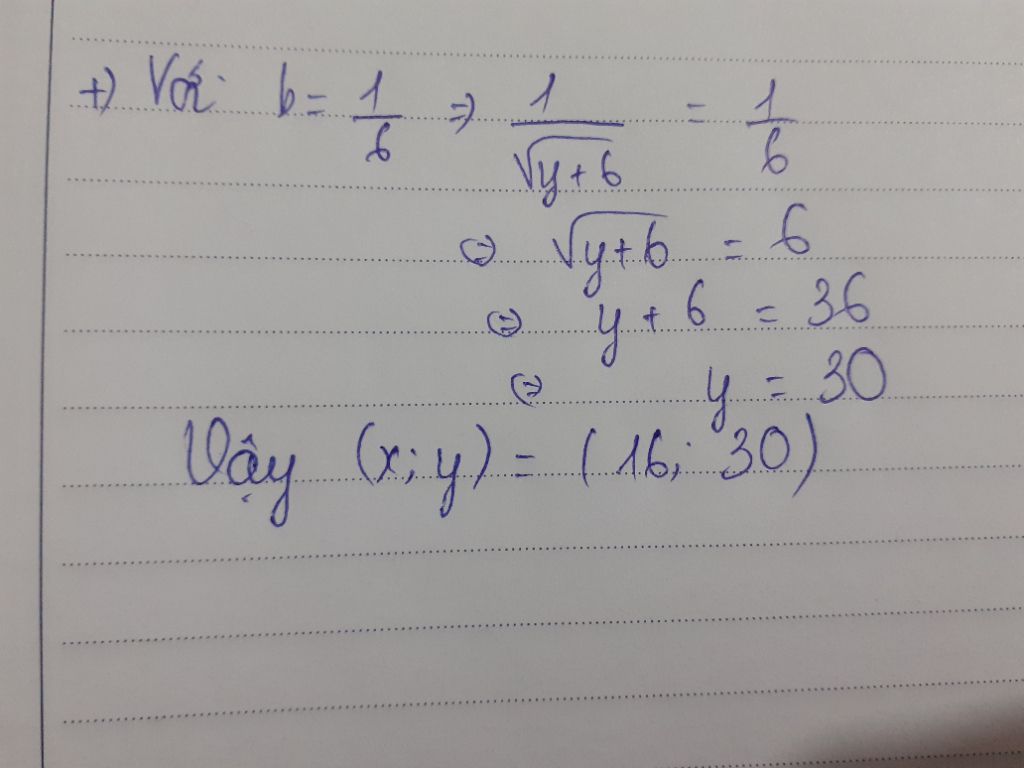 +) Với b = 1/6 => 1/√(y+6) = 1/6
<=> √(y+6) = 6
<=> y + 6 = 36
<=> y = 30
Vậy (x; y) = (16; 30)